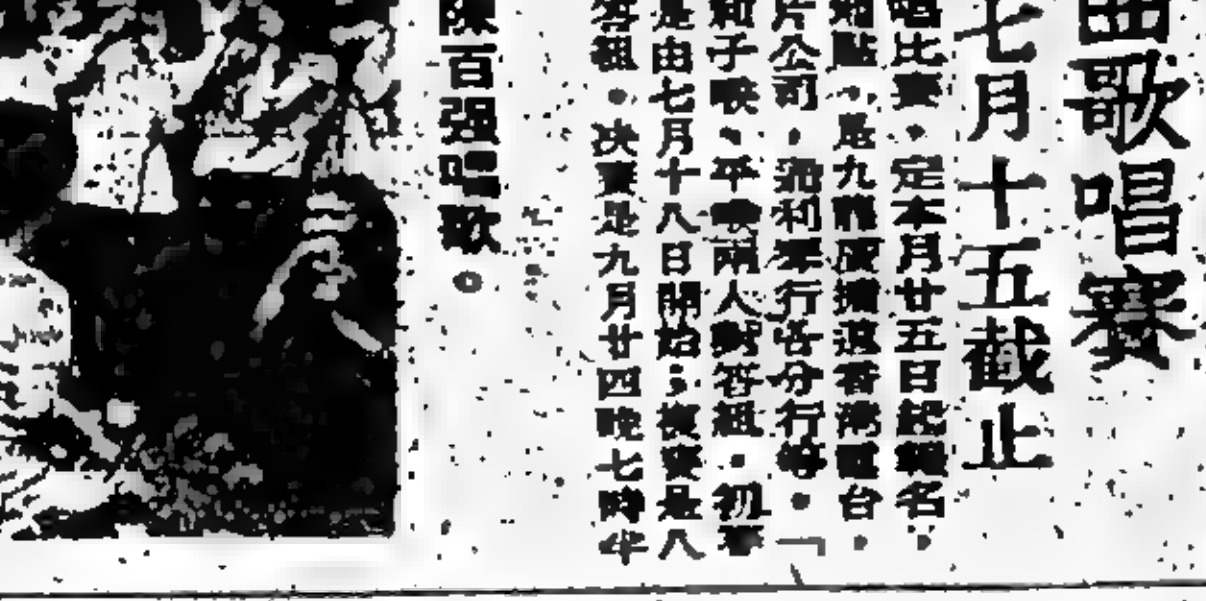 曲歌唱賽
七月十五截止
唱比賽，定本月廿五日起報名，
，是九龍廣播道香港電台
片公司，沙利文行各分行等。「
和子喉、平喉兩人對答組，初賽
是由七月十八日開始；複賽是八
答組，決賽是九月廿四晚七時半
陳百强唱歌。